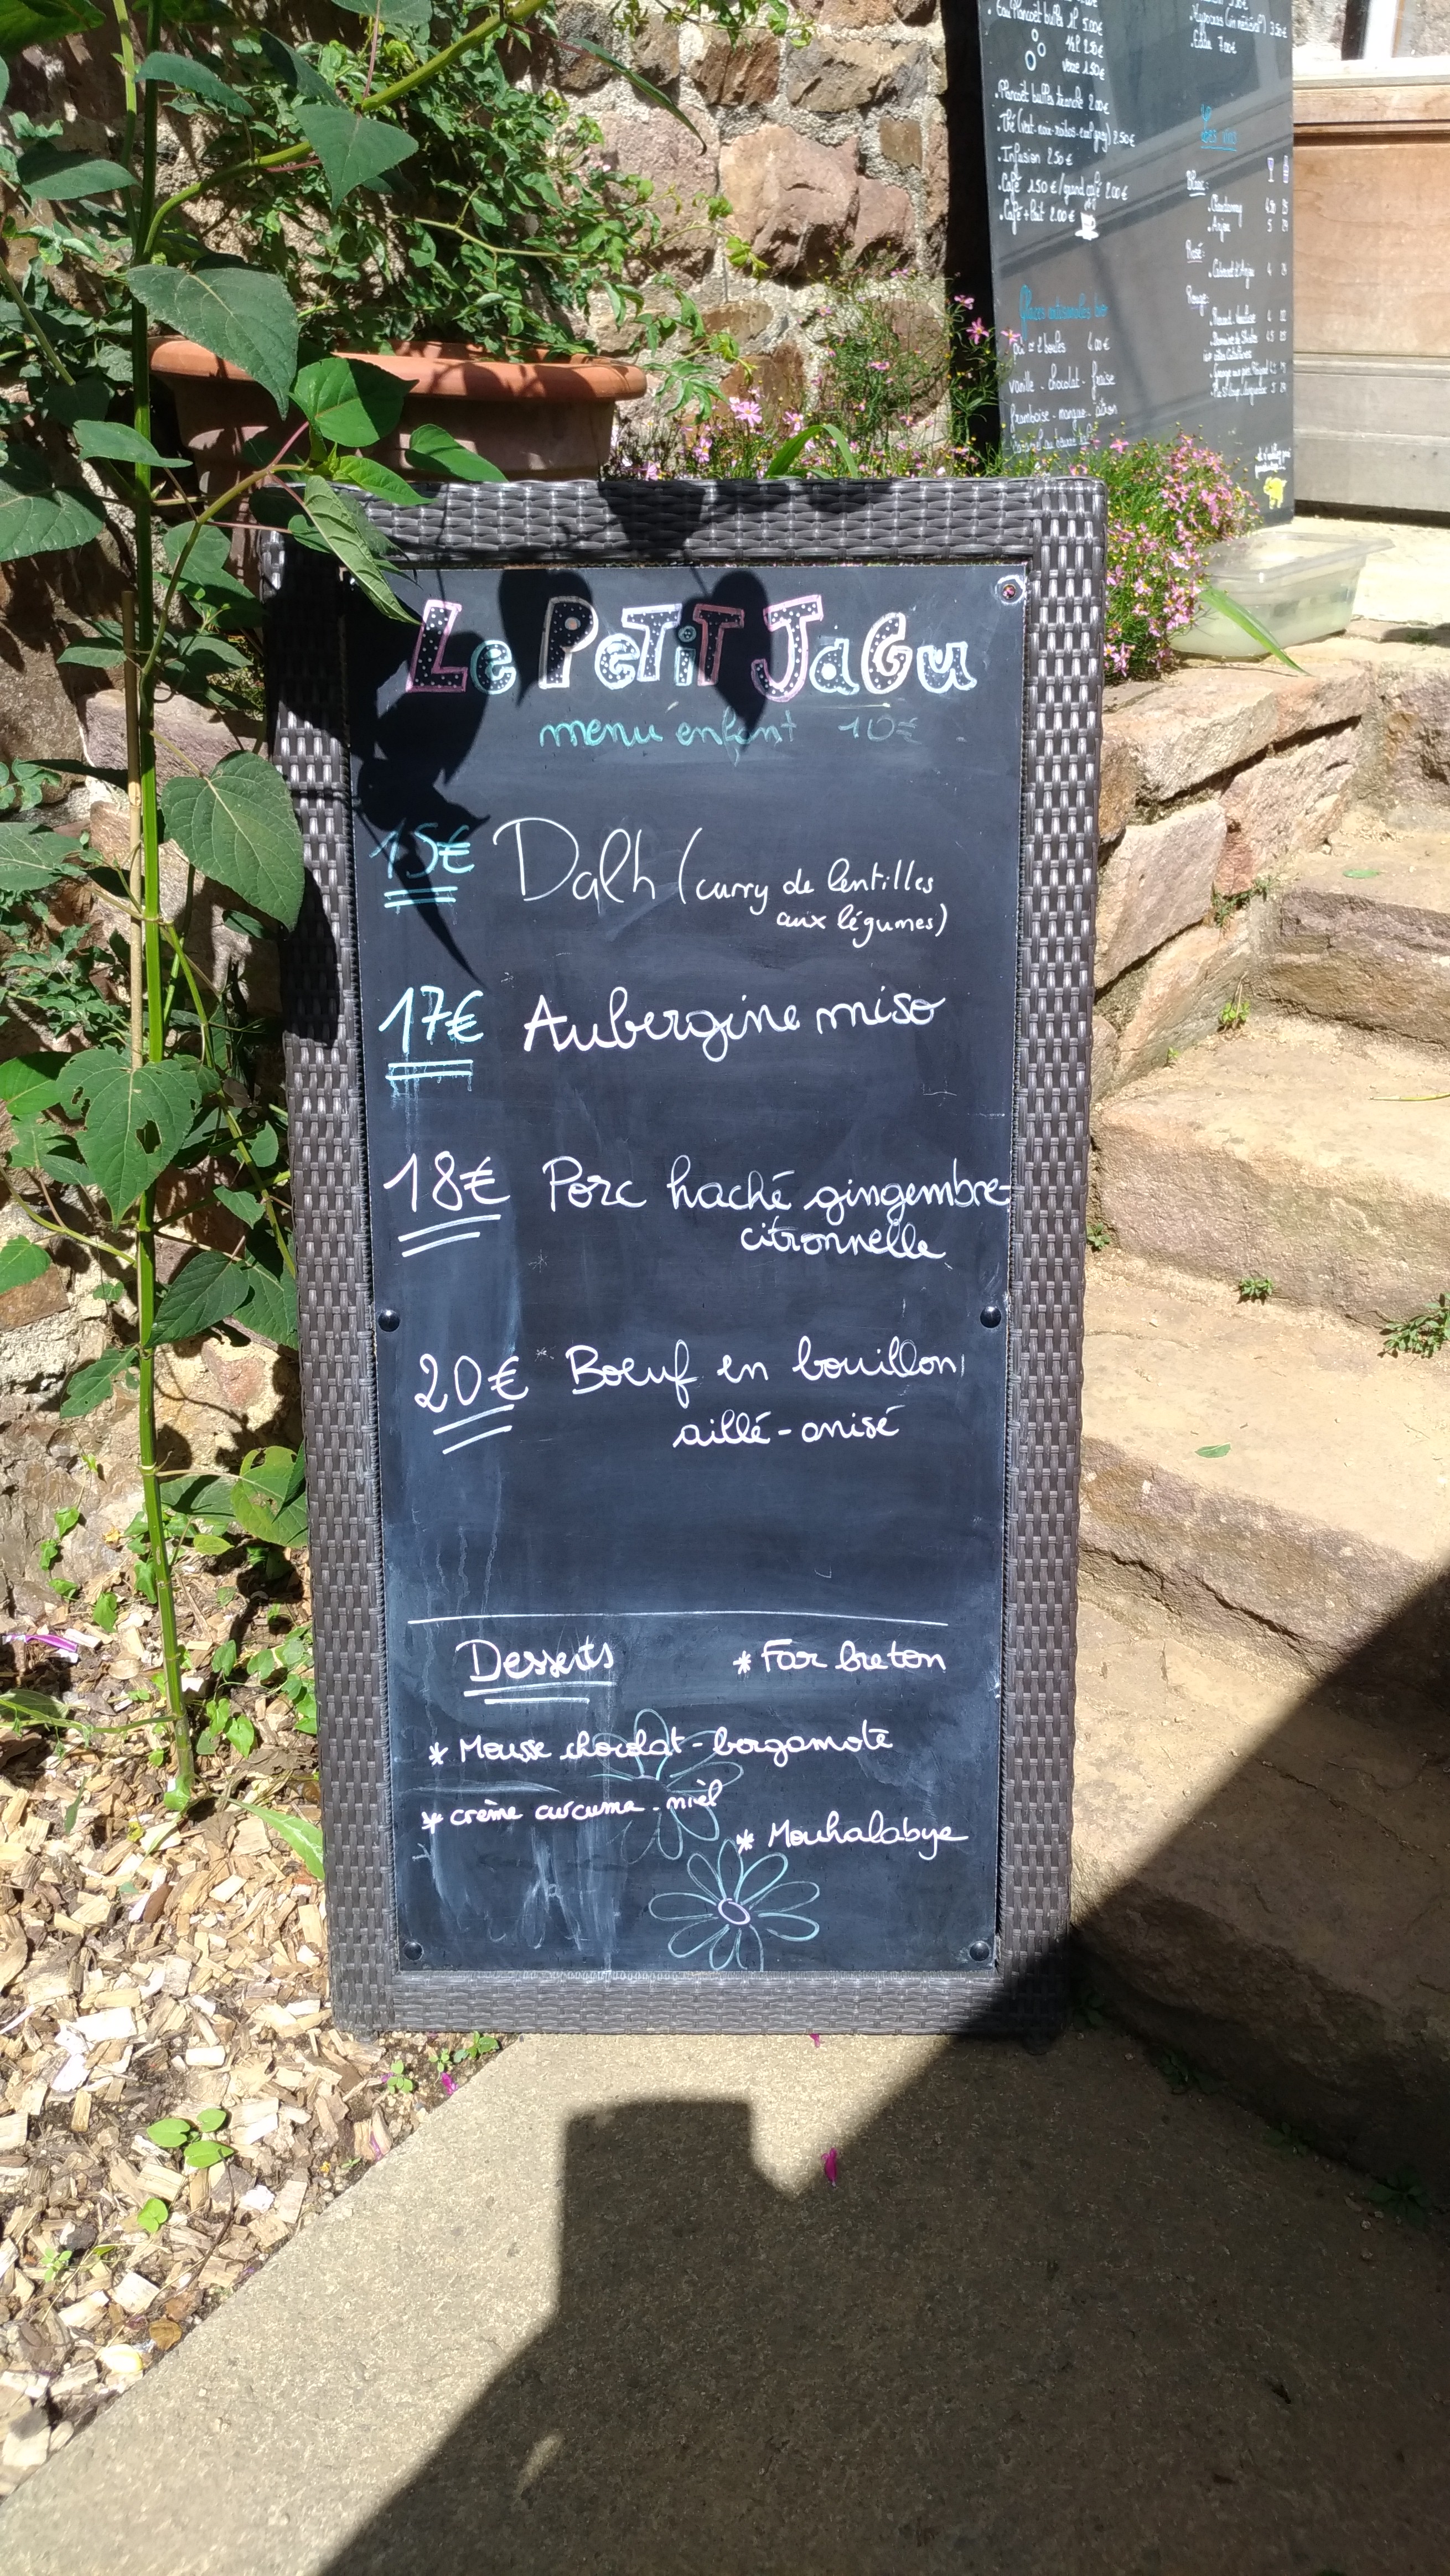 Le PeTiT JaGu
menu enfant 10€
15€ Dalh (curry de lentilles
aux légumes)
17€ Aubergine miso
18€ Porc haché gingembre-
citronnelle
20€ Boeuf en bouillon
aillé-anisé
Desserts * Far breton
* Mousse chocolat-bergamote
* crème curcuma-miel
* Mouhalabye
. Eau Plancoët bulles 1l 5.00€
1/2l 2.50€
verre 1.50€
. Plancoët bulles tranche 2.00€
. Thé (vert-noir-roïbos-earl grey) 2.50€
. Infusion 2.50€
. Café 1.50€/grand café 2.00€
. Café + lait 2.00€
Glaces artisanales bio
pot = 2 boules 4.00€
vanille - chocolat - fraise
framboise - mangue - citron
caramel au beurre salé
3.50€
7.00€
Les vins
Blanc:
. Chardonnay
. Anjou 5
Rosé:
. Cabernet d'Anjou 4
Rouge: